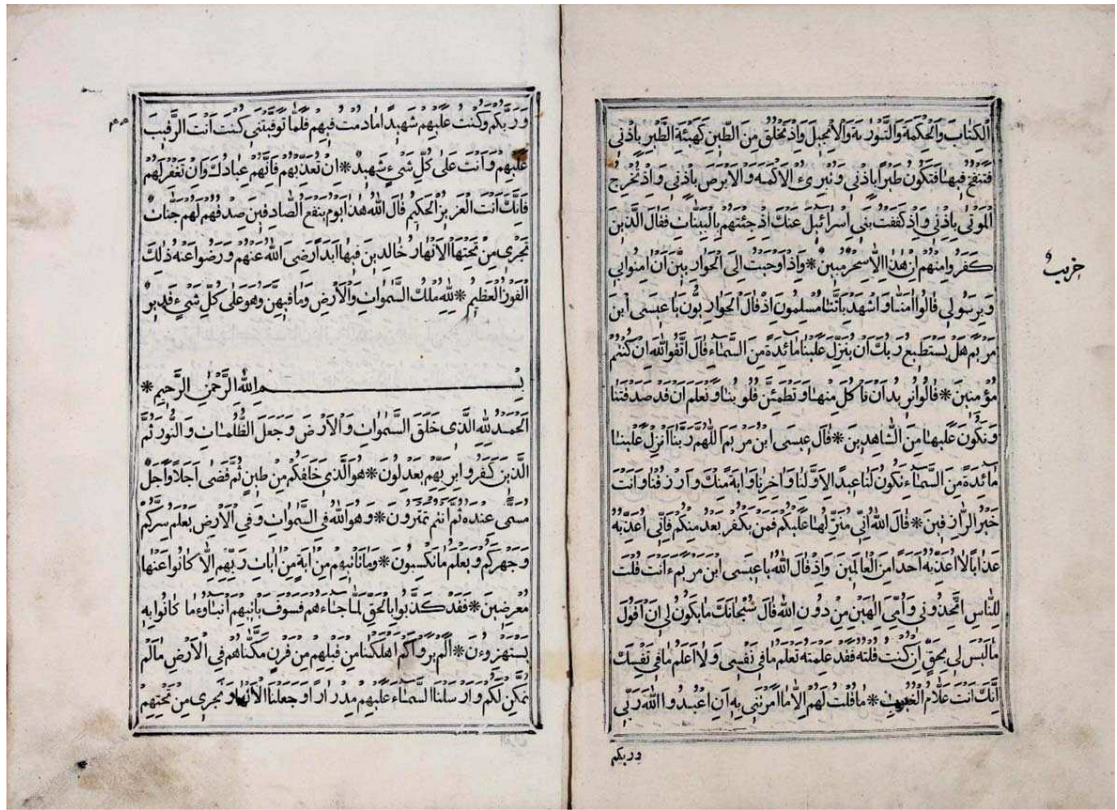 الكتاب والحكمة والتورية والانجيل واذ تخلق من الطين كهيئة الطير باذني
فتنفخ فيها فتكون طيرا باذني وتبرئ الاكمه والابرص باذني واذ تخرج
الموتى باذني واذ كففت بني اسرائيل عنك اذ جئتهم بالبينات فقال الذين
كفروا منهم ان هذا الا سحر مبين * واذ اوحيت الى الحواريين ان امنوا بي
وبرسولي قالوا امنا واشهد باننا مسلمون اذ قال الحواريون يا عيسى ابن
مريم هل يستطيع ربك ان ينزل علينا مائدة من السماء قال اتقوا الله ان كنتم
مؤمنين * قالوا نريد ان نأكل منها وتطمئن قلوبنا ونعلم ان قد صدقتنا
ونكون عليها من الشاهدين * قال عيسى ابن مريم اللهم ربنا انزل علينا
مائدة من السماء تكون لنا عيدا لاولنا واخرنا واية منك وارزقنا وانت
خير الرازقين * قال الله اني منزلها عليكم فمن يكفر بعد منكم فاني اعذبه
عذابا لا اعذبه احدا من العالمين واذ قال الله يا عيسى ابن مريم ءانت قلت
للناس اتخذوني وامي الهين من دون الله قال سبحانك ما يكون لي ان اقول
ما ليس لي بحق ان كنت قلته فقد علمته تعلم ما في نفسي ولا اعلم ما في نفسك
انك انت علام الغيوب * ما قلت لهم الا ما امرتني به ان اعبدوا الله ربي
وربكم
وربكم وكنت عليهم شهيدا ما دمت فيهم فلما توفيتني كنت انت الرقيب
عليهم وانت على كل شيء شهيد * ان تعذبهم فانهم عبادك وان تغفر لهم
فانك انت العزيز الحكيم قال الله هذا يوم ينفع الصادقين صدقهم لهم جنات
تجري من تحتها الانهار خالدين فيها ابدا رضي الله عنهم ورضوا عنه ذلك
الفوز العظيم * لله ملك السموات والارض وما فيهن وهو على كل شيء قدير
بسم الله الرحمن الرحيم *
الحمد لله الذي خلق السموات والارض وجعل الظلمات والنور ثم
الذين كفروا بربهم يعدلون * هو الذي خلقكم من طين ثم قضى اجلا واجل
مسمى عنده ثم انتم تمترون * وهو الله في السموات وفي الارض يعلم سركم
وجهركم ويعلم ما تكسبون * وما تاتيهم من اية من ايات ربهم الا كانوا عنها
معرضين * فقد كذبوا بالحق لما جاءهم فسوف يأتيهم انباؤا ما كانوا به
يستهزءون * الم يروا كم اهلكنا من قبلهم من قرن مكناهم في الارض ما لم
نمكن لكم وارسلنا السماء عليهم مدرارا وجعلنا الانهار تجري من تحتهم